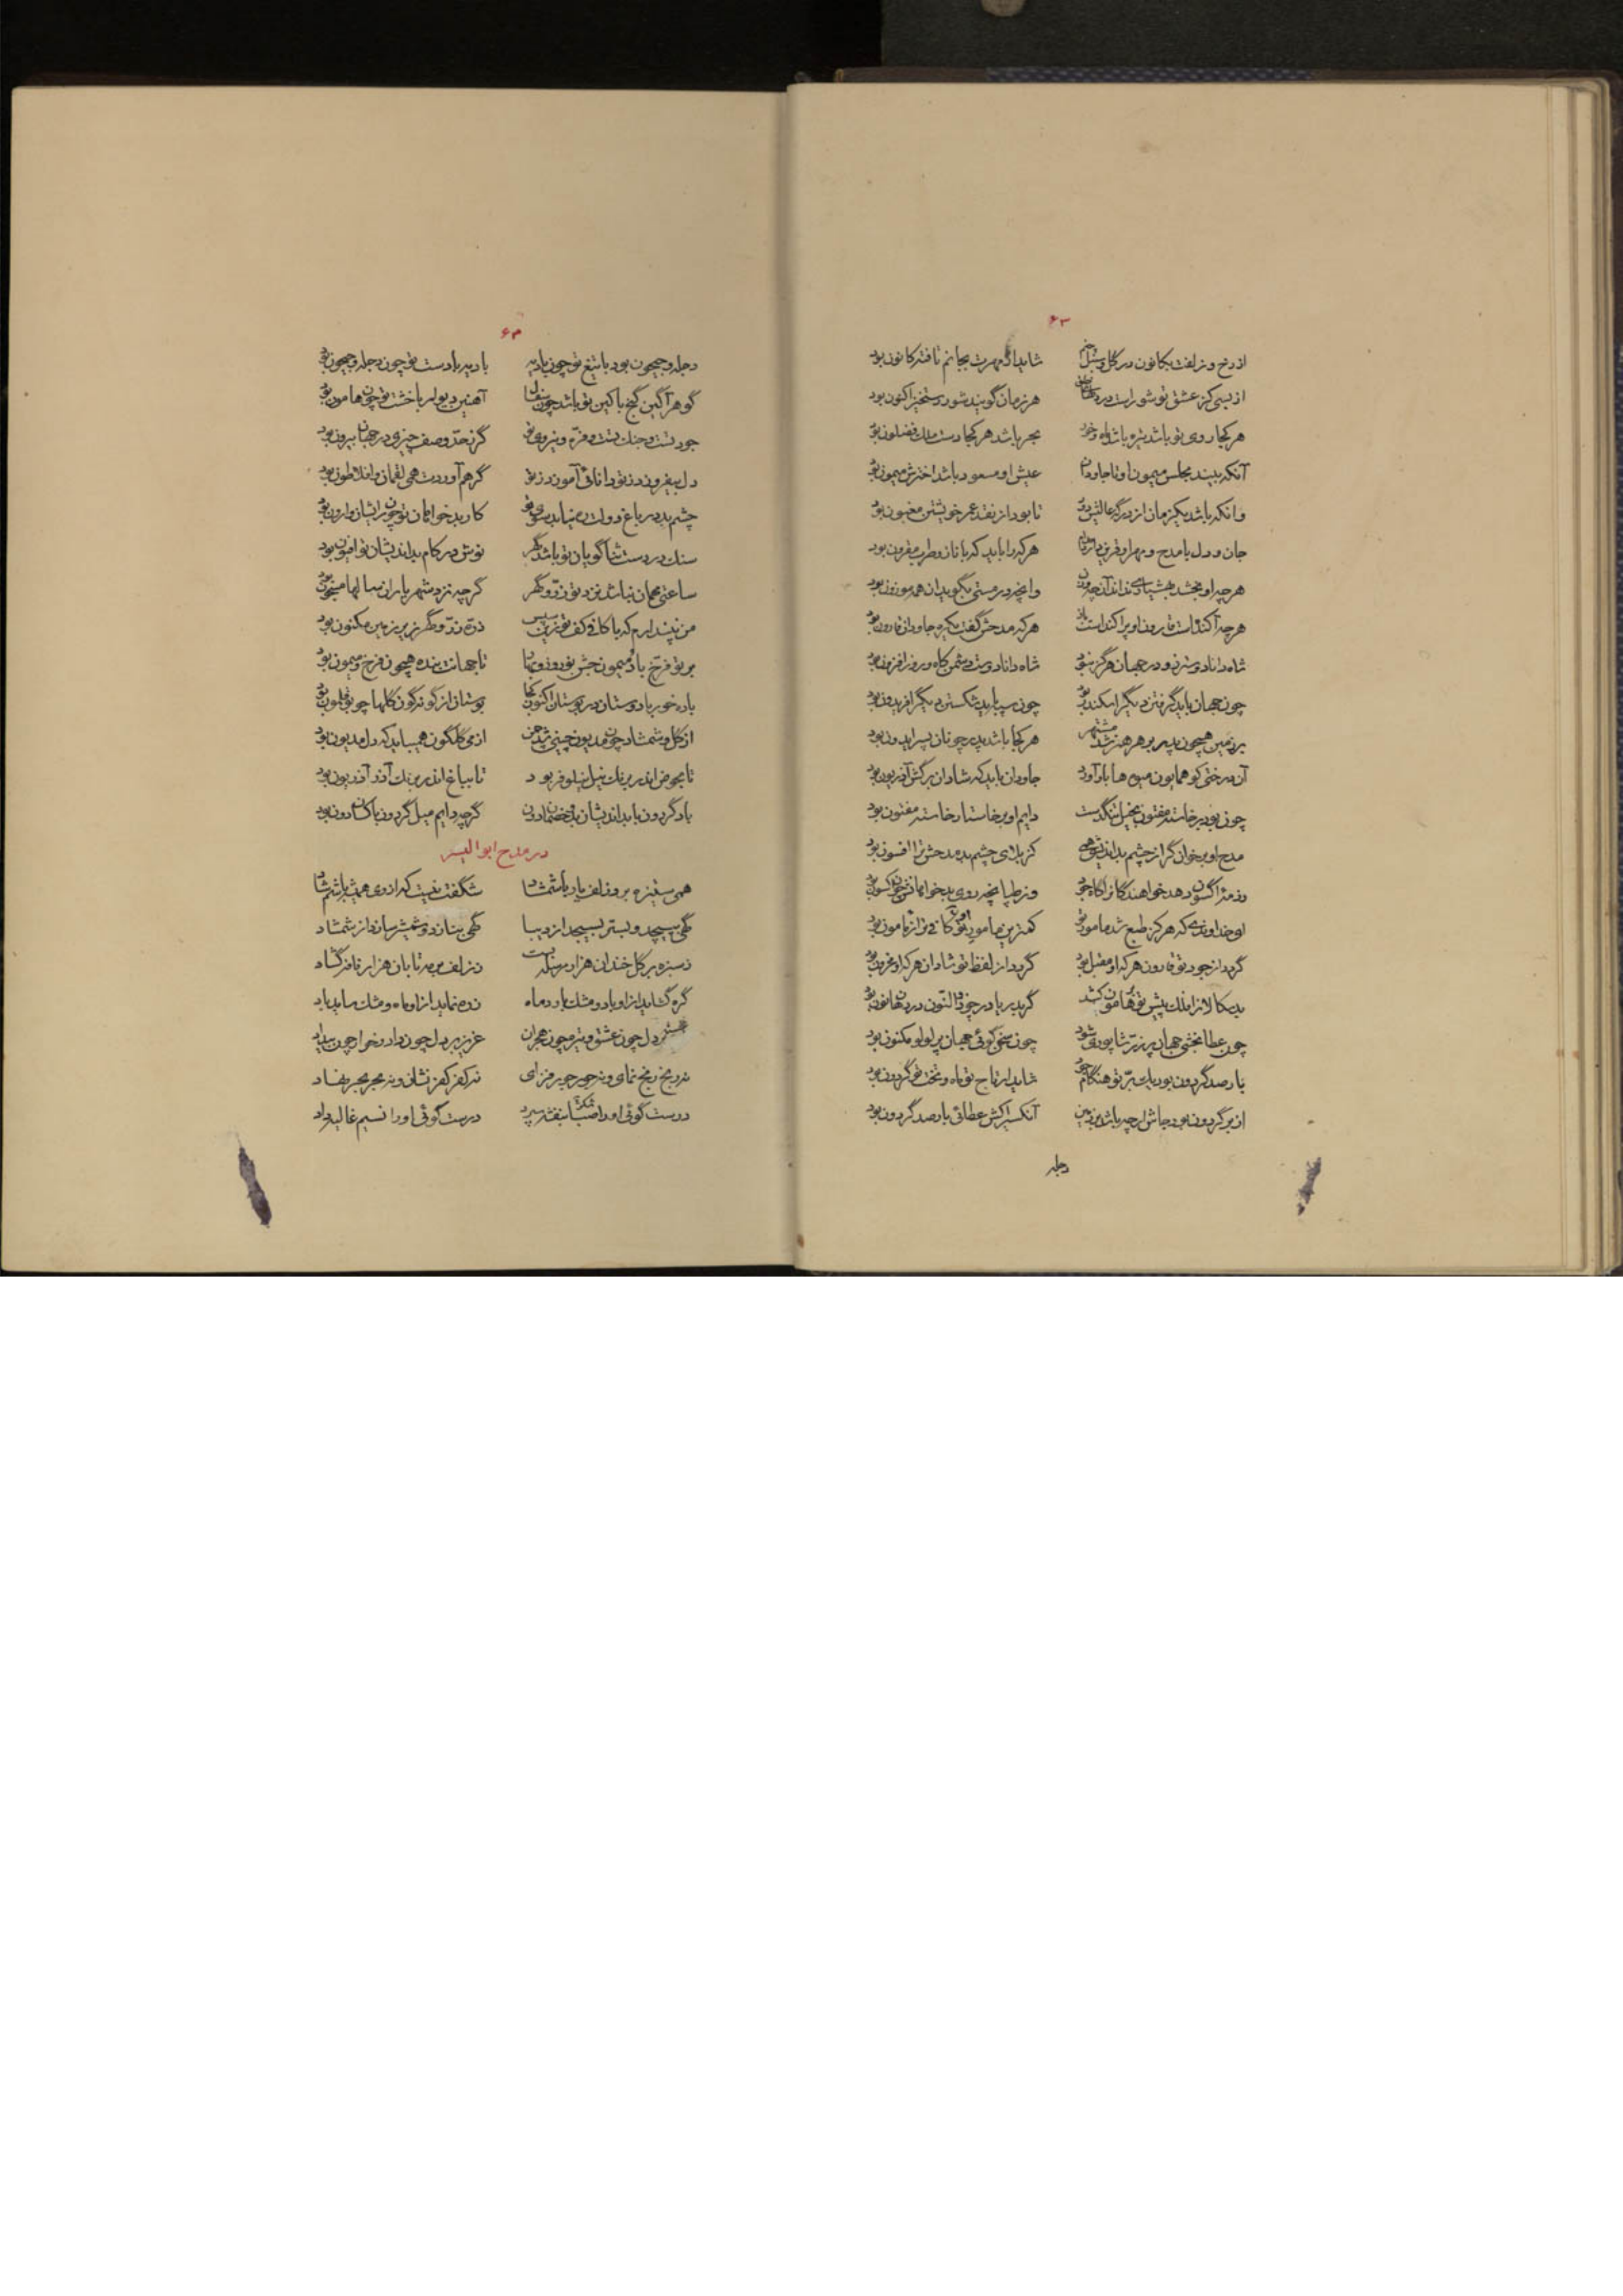 ۶۳
از رخ و زلفت بکانون در گل و سنبل شاید ار مهرت بجانم تافته کانون بود
از بسی کز عشق تو شور است در هر زمان گویند شور رستخیز اکنون بود
هر کجا روی تو باشد تیره باشد ماه و خور بحر باشد هر کجا دست ملک فضلون بود
آنکه بیند مجلس میمون او تا جاودان عیش او مسعود باشد اخترش میمون بود
وانکه باشد یکزمان از درگه عالیش دور تا بود از نقد عمر خویشتن مغبون بود
جان و دل با مدح و مهر او قرین هر که را باید که با ناز و طرب مقرون بود
هر چه او بخشد بهشیاری نداند آن چه بود وانچه در مستی بگوید آن همه موزون بود
هر چه آکنده است قارون او پراکنده است باز هر که مدحش گفت یکره جاودان قارون بود
شاه دانا دوست زو در جهان هرگز نبود شاه دانا دوست دشمن کاه و روز افزون بود
چون جهان باید گرفتن دیگر اسکندر بود چون سپه باید شکستن دیگر افریدون بود
بر زمین همچون پدر بر هر هنر شد مشتهر هر کجا باشد پدر چونان پسر ایدون بود
آن درختی کو همایون میوه ها بار آورد جاودان باید که شادان برگش آذریون بود
چون بود بر خاسته مفتون بخیل تنگدست دایم او بر خاستار خاسته مفتون بود
مدح او برخوان گر از چشم بد اندیشی همی کز بلای چشم بد مدحش ترا افسون بود
ای خداوندی که هر کز طبع شد مامور تو کمترین مامور تو کافی تر از مامون بود
گردد از جود تو قارون هر که او مفلس بود گردد از لفظ تو شادان هر که او محزون بود
چون عطا بخشی جهان پر زر شاپوری شود چون سخن گوئی جهان پر لولو مکنون بود
بار صد گردون بود یک بر تو هنگام جود شاید ار تاج تو ماه و تخت تو گردون بود
از بر گردون بود جاش ار چه باشد بر زمین آنکسی را کش عطائی بار صد گردون بود
دجله
۶۴
دجله و جیحون بود با تیغ تو چون بادیه بادیه با دست تو چون دجله و جیحون بود
گوهر آگین گنج با کین تو باشد چون سفال آهنین دیوار با خشت تو چون هامون بود
جود تست و جنک تست و فره و نیروی تو گر ز حد و وصف چیزی در جهان بیرون بود
دل بیفروزد ز تو دانائی آموزد ز تو گر هم آوردت همی لقمان و افلاطون بود
چشم بد در باغ دولت ره نیابد سوی تو کار بدخواهان تو چون رایشان وارون بود
سنک در دست ثنا گویان تو باشد گهر نوش در کام بد اندیشان تو افیون بود
ساعتی مهمان نباشد نزد تو زر و گهر گر چه نزد شهریاران سالها مسجون بود
من نپندارم که با کافی کف تو زین سپس ذره زر و گهر زیر زمین مکنون بود
بر تو فرخ باد و میمون جشن نوروز و بهار تا جهانت بنده همچون فرخ و میمون بود
باده خور با دوستان در بوستان اکنون کجا بوستان از گونه گون گلها چو بوقلمون بود
از گل و شمشاد چون مدیون چینی شد چمن از می گلگون همیباید که دل مدیون بود
تا بحوض اندر برنک نیل نیلوفر بود تا بباغ اندر برنک آذر آذریون بود
باد گردون با بد اندیشان و خصمانت دون گر چه دایم میل گردون با کسان دون بود
در مدح ابو الیسر
همی ستیزه برد زلف یار با شمشاد شگفت نیست که از وی همیشه باشم شاد
گهی بپیچد و بستر بسیجد از دیبا گهی بنازد و شمشیر سازد از شمشاد
ز سبزه بر گل خندان هزار سلسله بست ز زلف بر مه تابان هزار نافه گشاد
گره گشاید از او باد و مشک بارد ماه زره نماید از او ماه و مشک ساید باد
بدل چون عشق و تیره چون هجران عزیز بر دل چون داد و خوار چون بیداد
نه رنج رنج نمای و نه حور حور فزای نه کفر کفر نشان و نه سحر سحر نهاد
درست گوئی او را صبا بنفشه سپرد درست گوئی او را نسیم غالیه داد